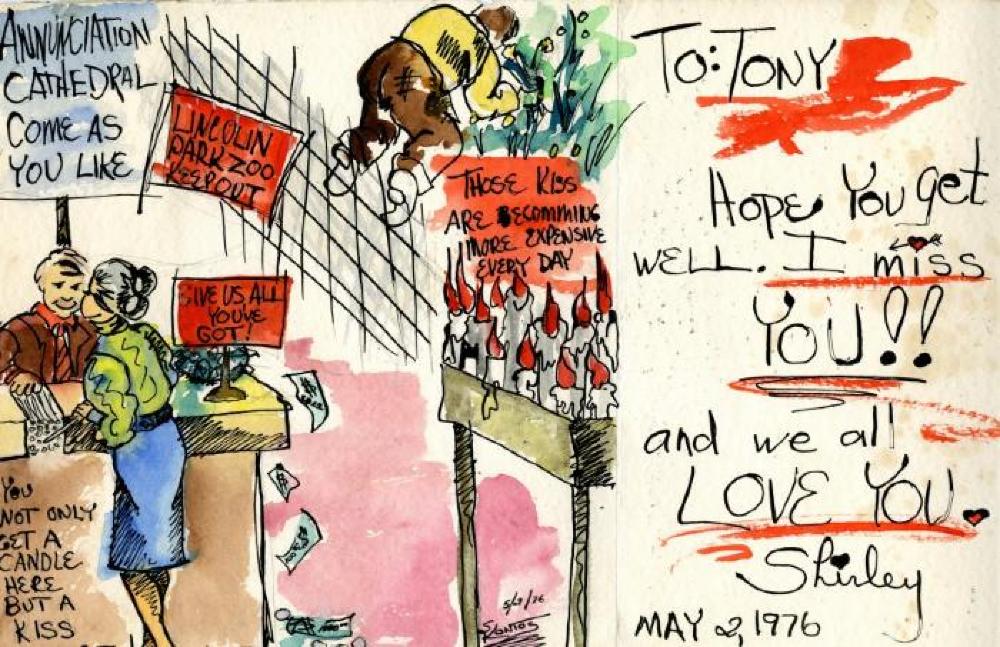 ANNUNCIATION
CATHEDRAL
COME AS
YOU LIKE
LINCOLIN
PARK ZOO
KEEP OUT
THOSE KISS
ARE BECOMMING
MORE EXPENSIVE
EVERY DAY
GIVE US ALL
YOUVE
GOT!
YOU
NOT ONLY
GET A
CANDLE
HERE
BUT A
KISS
TO: TONY
HOPE YOU get
WELL. I miss
YOU!!
and we all
LOVE YOU.
Shirley
MAY 2, 1976